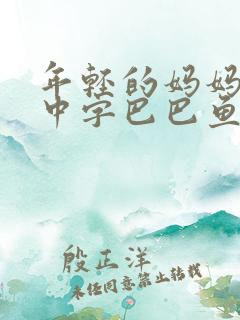 年轻的妈妈
中字巴巴鱼
殷正洋
未经同意禁止转载